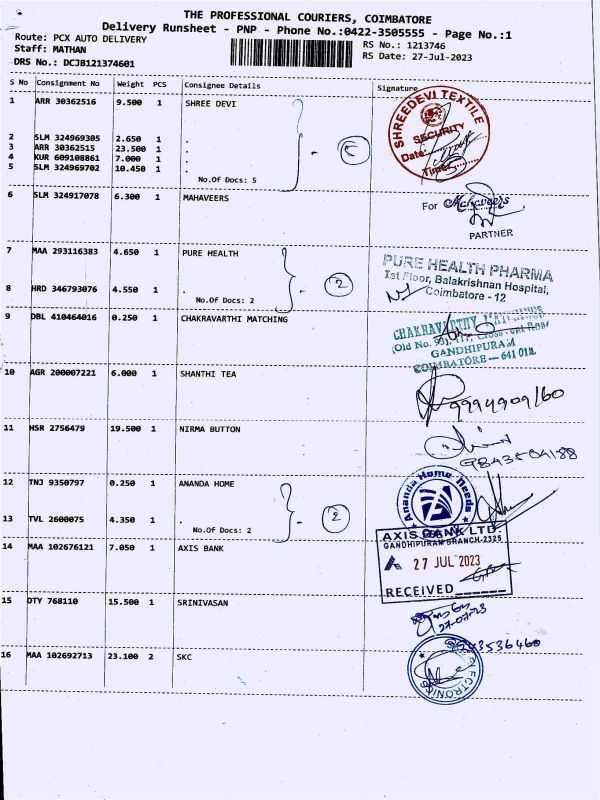 THE PROFESSIONAL COURIERS, COIMBATORE
Delivery Runsheet - PNP - Phone No.:0422-3505555 - Page No.:1
Route: PCX AUTO DELIVERY
RS No.: 1213746
Staff: MATHAN
RS Date: 27-Jul-2023
DRS No.: DCJB121374601
S No Consignment No Weight PCS Consignee Details Signature
1 ARR 30362516 9.500 1 SHREE DEVI
SHREEDEVI TEXTILE
SECURITY
Date:
Time:
2 SLM 324969305 2.650 1 .
3 ARR 30362515 23.500 1 .
4 KUR 609108861 7.000 1 .
5 SLM 324969702 10.450 1 .
No.Of Docs: 5
6 SLM 324917078 6.300 1 MAHAVEERS
For Mahaveers
PARTNER
7 MAA 293116383 4.650 1 PURE HEALTH
2
PURE HEALTH PHARMA
1st Floor, Balakrishnan Hospital,
Coimbatore - 12
8 HRD 346793076 4.550 1 .
No.Of Docs: 2
9 DBL 410464016 0.250 1 CHAKRAVARTHI MATCHING
CHAKRAVARTHY
(Old No. 99)
GANDHIPURAM
COIMBATORE - 641 012.
10 AGR 200007221 6.000 1 SHANTHI TEA
9994909160
11 HSR 2756479 19.500 1 NIRMA BUTTON
9843504188
12 TNJ 9350797 0.250 1 ANANDA HOME
2
Ananda Home Needs
13 TVL 2600075 4.350 1 .
No.Of Docs: 2
14 MAA 102676121 7.050 1 AXIS BANK
AXIS BANK LTD.
GANDHIPURAM BRANCH-2325
27 JUL 2023
RECEIVED
15 OTY 768110 15.500 1 SRINIVASAN
27-07-23
16 MAA 102692713 23.100 2 SKC